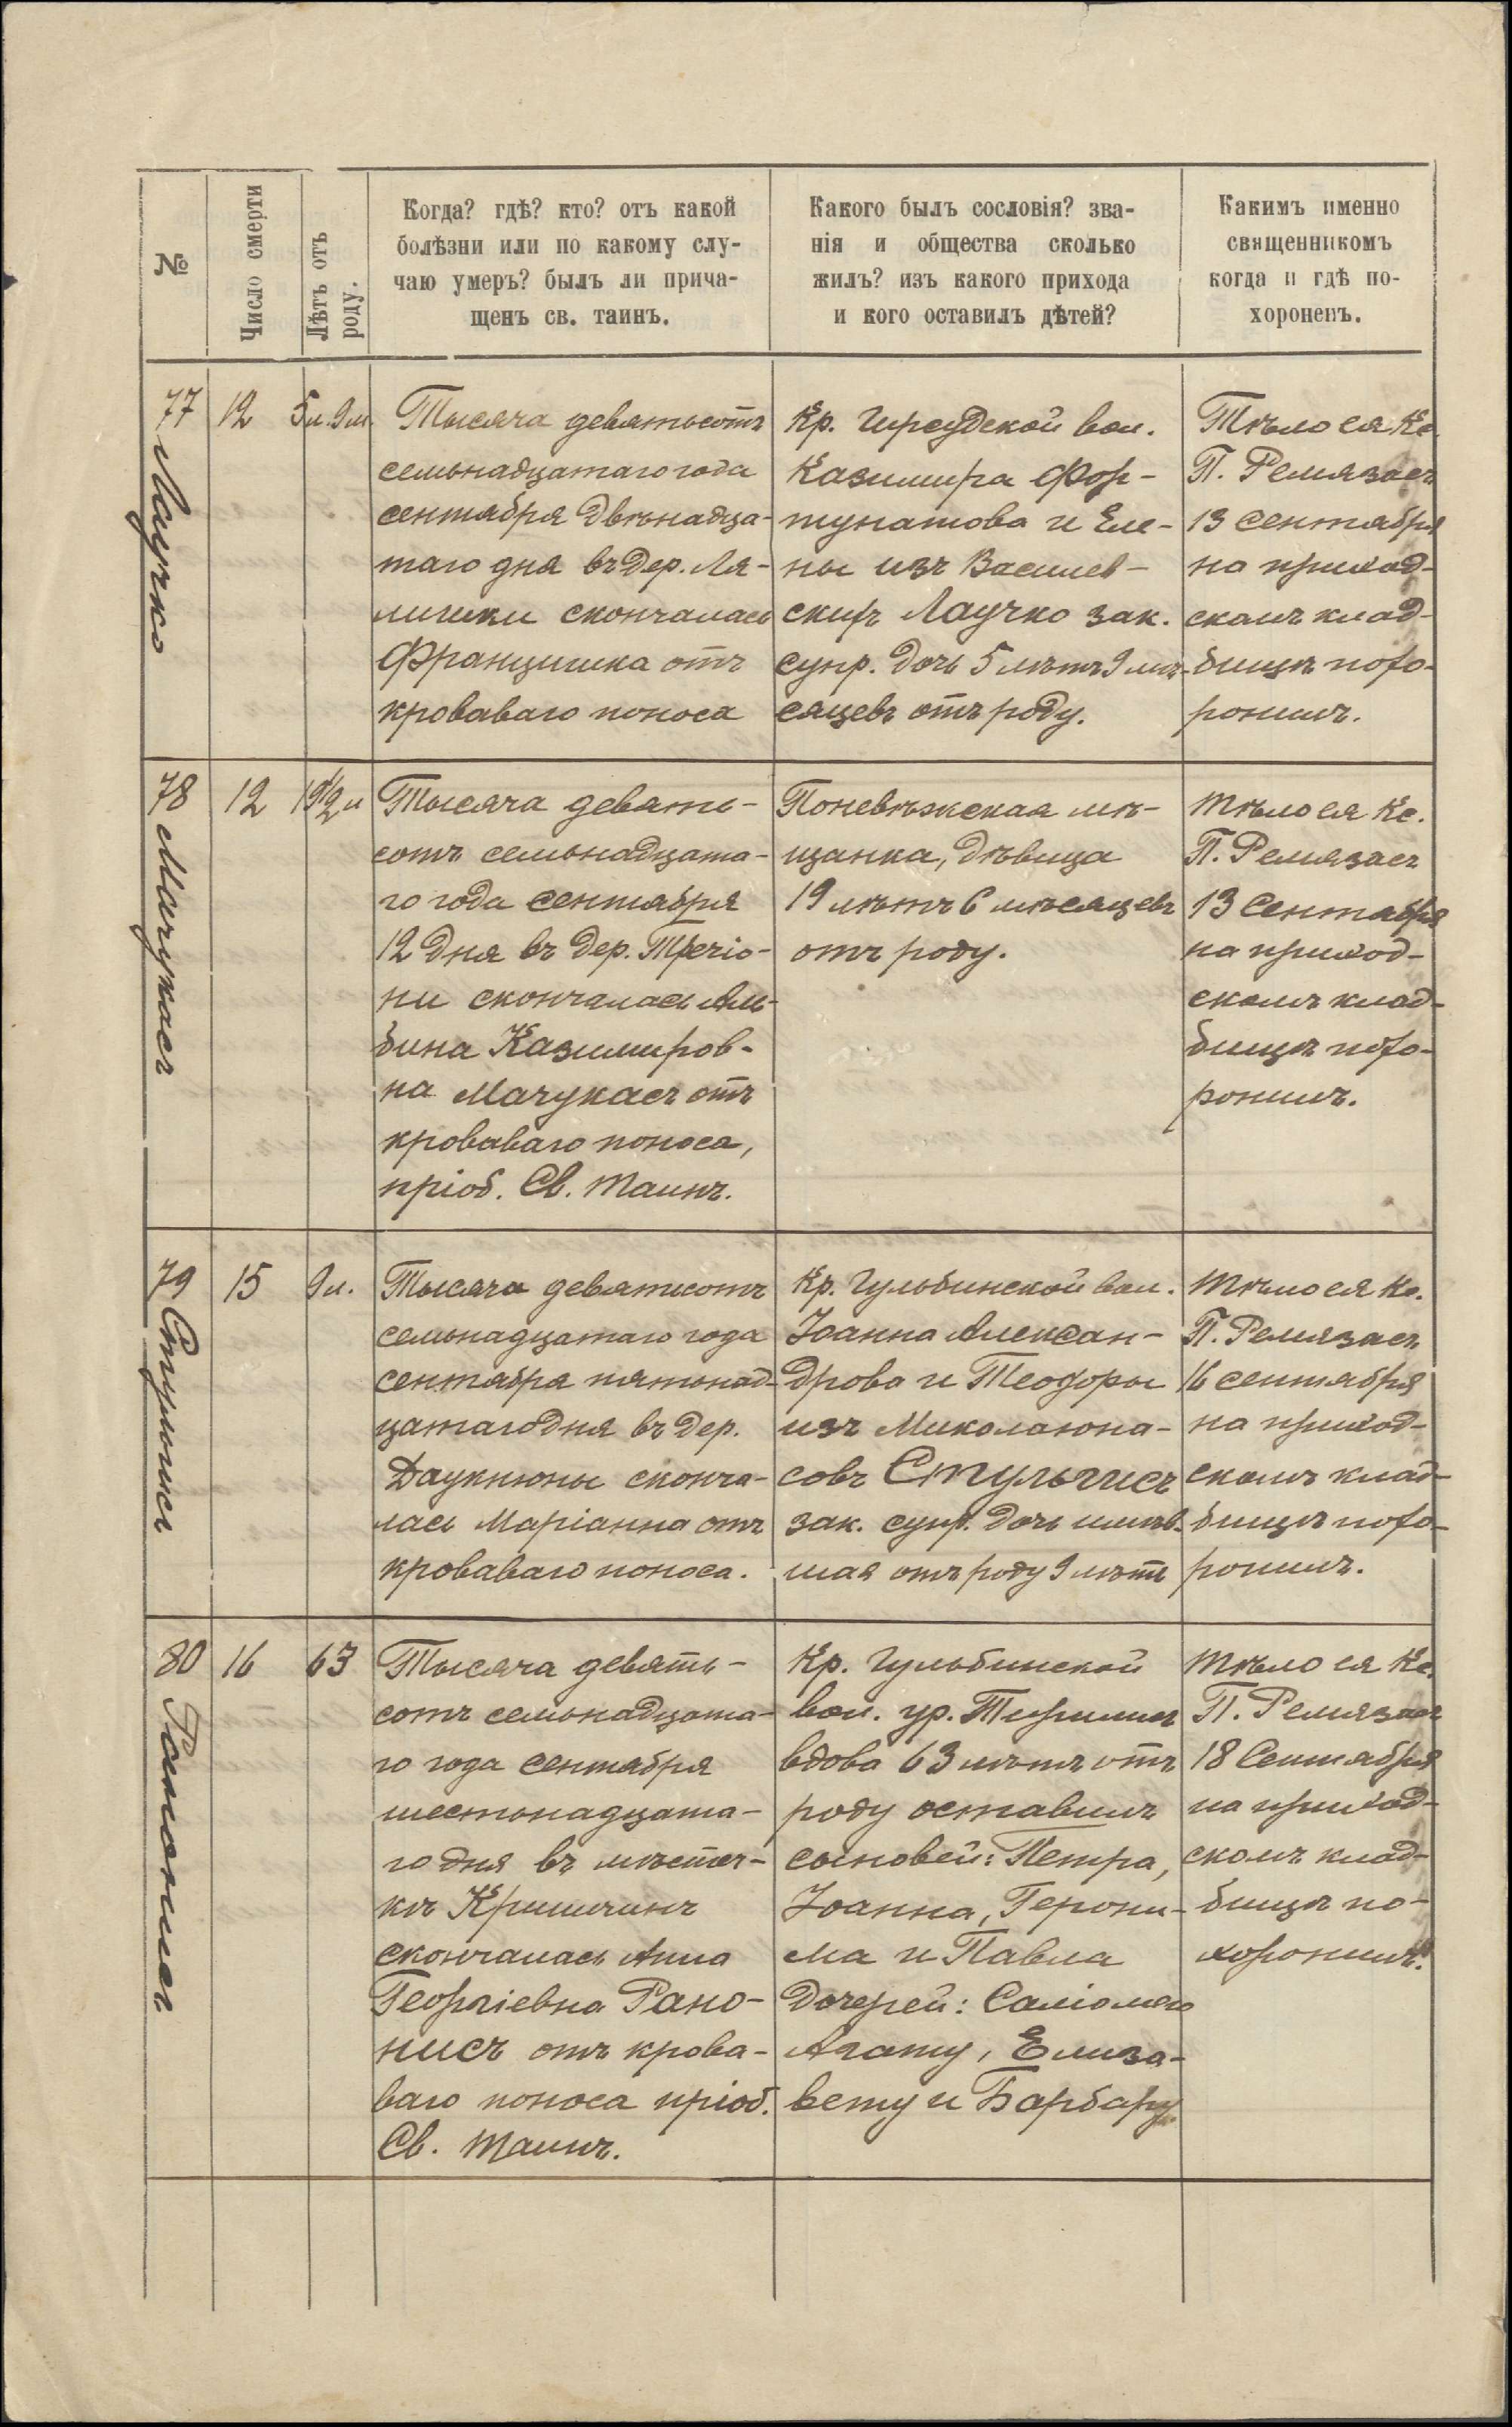 №
Число смерти
Лѣтъ отъ
роду.
Когда? гдѣ? кто? отъ какой
болѣзни или по какому слу-
чаю умеръ? былъ ли прича-
щенъ св. таинъ.
Какого былъ сословія? зва-
нія и общества сколько
жилъ? изъ какого прихода
и кого оставилъ дѣтей?
Какимъ именно
священникомъ
когда и гдѣ по-
хороненъ.
77 Лаучко
12
5 л. 9 м.
Тысяча девятьсотъ
семьнадцатаго года
сентября двѣнадца-
таго дня въ дер. Ля-
лишки скончалась
Францишка отъ
кроваваго поноса
Кр. вол.
Казимира Фор-
тунатова и Еле-
ны изъ Василев-
скихъ Лаучко зак.
супр. дочь 5 лѣтъ 9 мѣ-
сяцевъ отъ роду.
Тѣло ея Кс.
П. Ремязасъ
13 Сентября
на приход-
скомъ клад-
бищѣ похо-
ронилъ.
78 Мачукасъ
12
19 1/2 л
Тысяча девять-
сотъ семьнадцата-
го года сентября
12 дня въ дер.
ни скончалась Аль-
бина Казимиров-
на Мачукасъ отъ
кроваваго поноса,
пріоб. Св. Таинъ.
Поневѣжская мѣ-
щанка, дѣвица
19 лѣтъ 6 мѣсяцевъ
отъ роду.
Тѣло ея Кс.
П. Ремязасъ
13 Сентября
на приход-
скомъ клад-
бищѣ похо-
ронилъ.
79 Стульгисъ
15
9 л.
Тысяча девятьсотъ
семьнадцатаго года
сентября пятьнад-
цатаго дня въ дер.
Даукнюны сконча-
лась Маріанна отъ
кроваваго поноса.
Кр. Гульбинской вол.
Іоанна Алексан-
дрова и Теодоры
изъ Миколаюна-
совъ Стульгисъ
зак. супр. дочь имѣв-
шая отъ роду 9 лѣтъ
Тѣло ея Кс.
П. Ремязасъ
16 сентября
на приход-
скомъ клад-
бищѣ похо-
ронилъ.
80 Рапонисъ
16
63
Тысяча девять-
сотъ семьнадцата-
го года сентября
шестьнадцата-
го дня въ мѣстеч-
кѣ Криничинѣ
скончалась Анна
Георгіевна Рапо-
нисъ отъ крова-
ваго поноса пріоб.
Св. Таинъ.
Кр. Гульбинской
вол. ур.
вдова 63 лѣтъ отъ
роду оставила
сыновей: Петра,
Іоанна, Герони-
ма и Павла
дочерей: Саломею
Агату, Елиза-
вету и Барбару
Тѣло ея Кс.
П. Ремязасъ
18 Сентября
на приход-
скомъ клад-
бищѣ по-
хоронилъ.